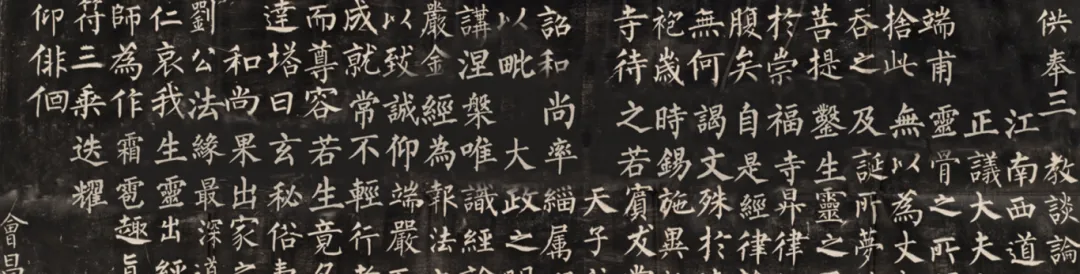 供奉三教談論
江南西道
正議大夫
端甫靈骨之所
捨此無以為丈
吞之及誕所夢
菩提鑿生靈之
於崇福寺昇律
腹矣自是經律
無何謁文殊於
袍歲時錫施異
寺待之若賓友
天子
詔和尚率緇属
以毗大政之明
講涅槃唯識經
嚴金經為報法
以致誠仰端嚴
成就常不輕行
而尊容若生竟
達塔曰玄秘俗壽
和尚果出家之
劉公法緣最深道
仁哀我生靈出經
師為作霜雹趣真
符三乘迭耀
仰俳佪
會昌